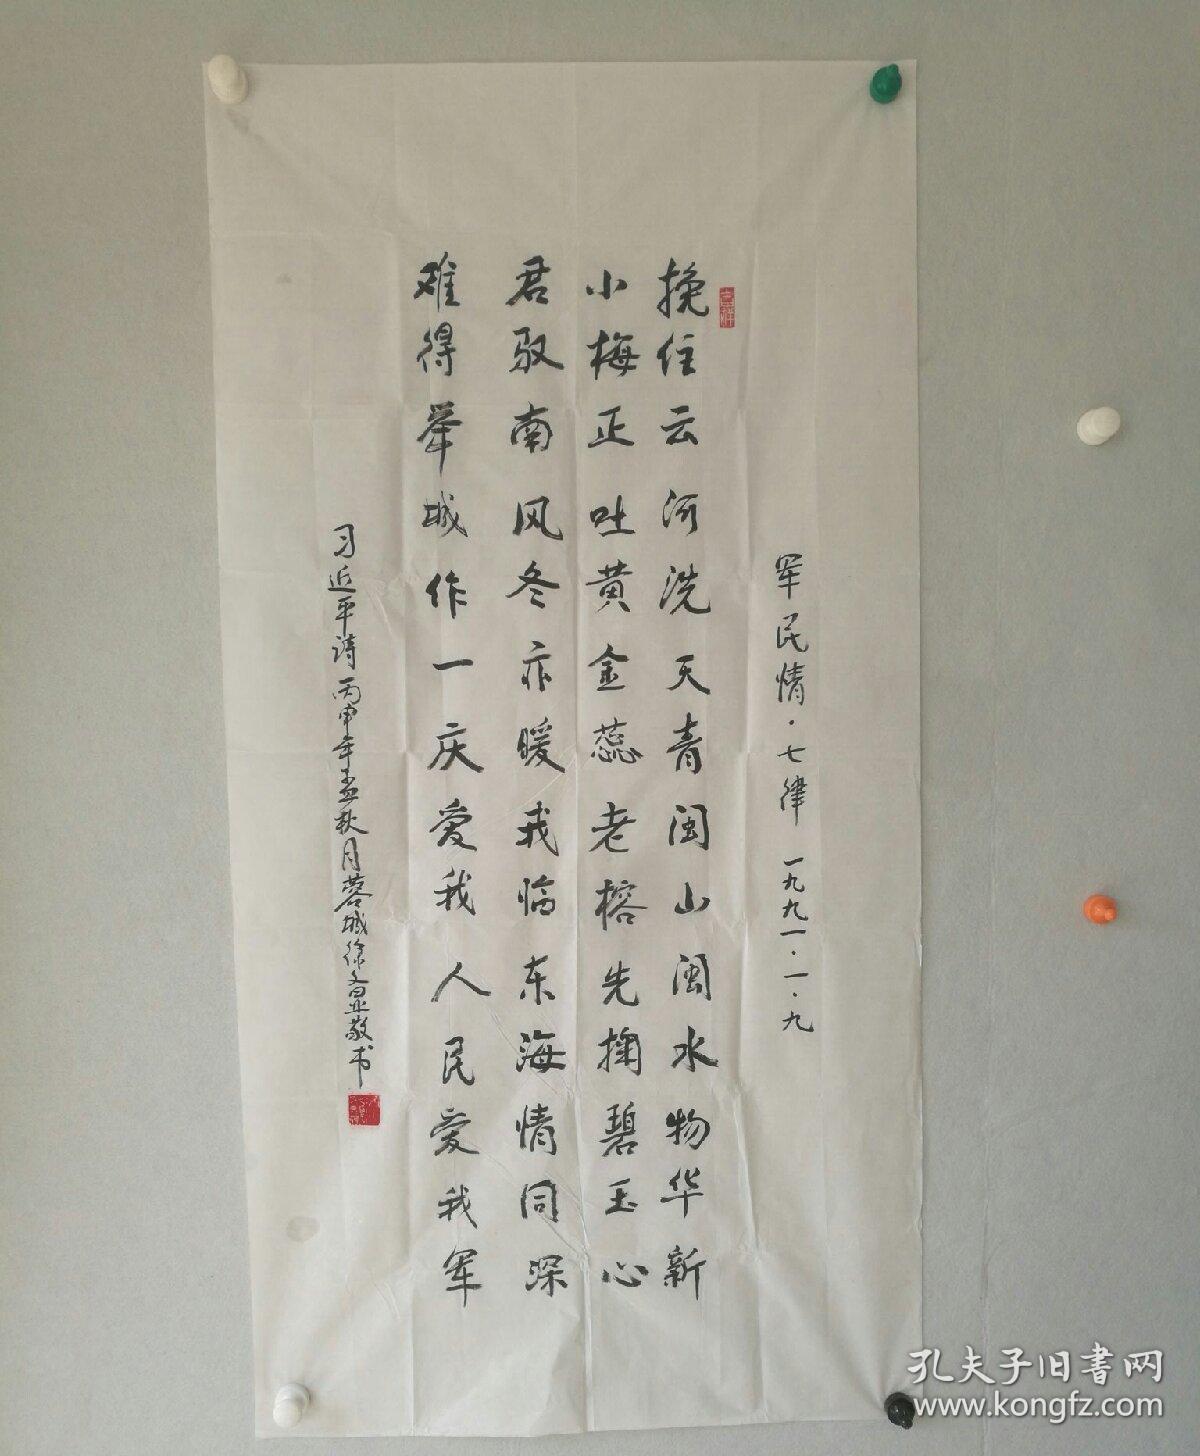 军民情·七律 一九九一·一·九
挽住云河洗天青闽山闽水物华新
小梅正吐黄金蕊老榕先掬碧玉心
君驭南风冬亦暖我临东海情同深
难得举城作一庆爱我人民爱我军
习近平诗丙申年孟秋月蓉城徐文显敬书
孔夫子旧書网
www.kongfz.com